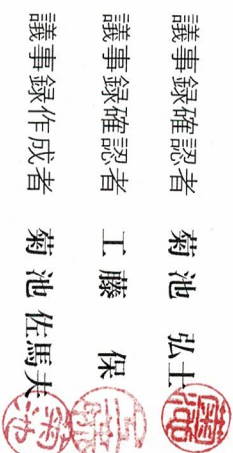 議事録確認者 菊池 弘士
議事録確認者 工藤 保
議事録作成者 菊池 佐馬夫
菊池